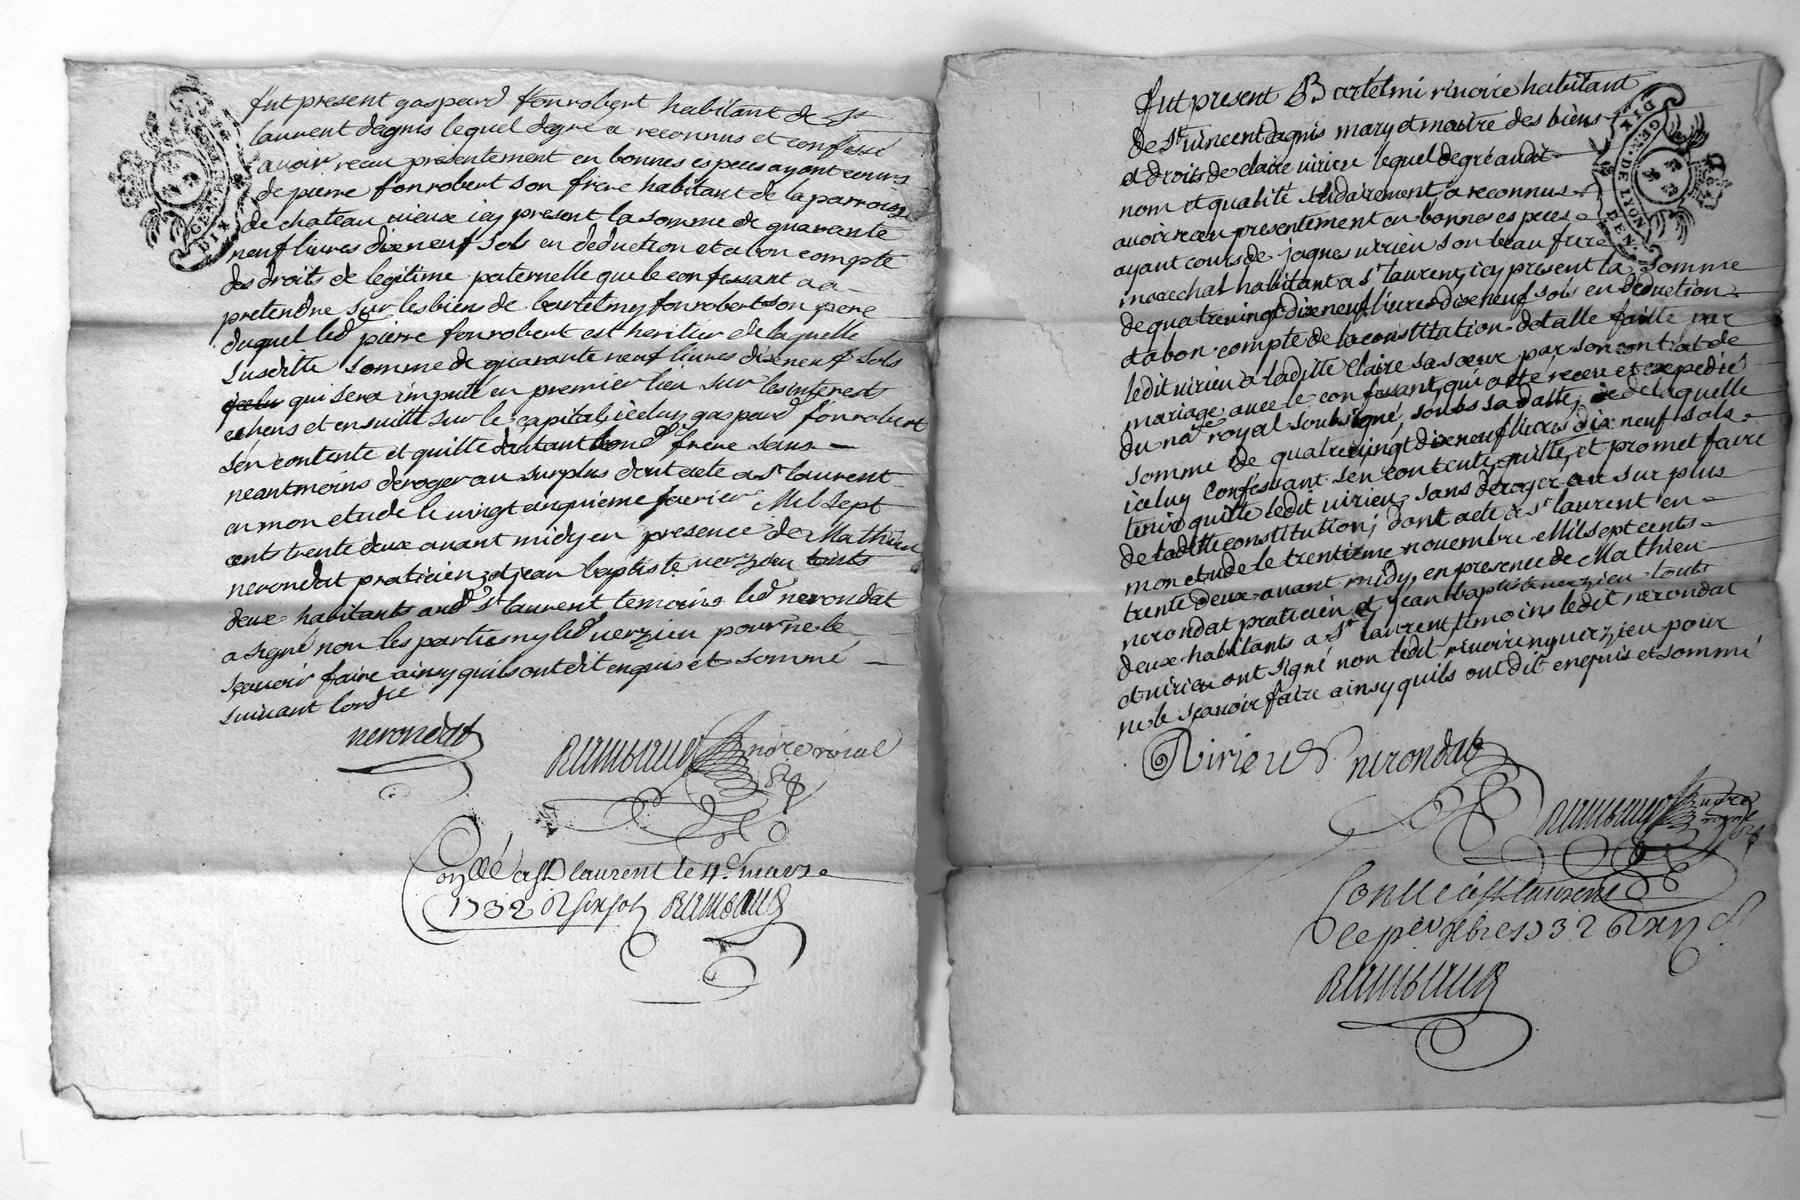 fut present gaspard fonrobert habitant de st
laurent dagnis lequel degre a reconnus et confessé
avoir receu presentement en bonnes especes ayant cours
de pierre fonrobert son frere habitant de la parroisse
de chateau vieux icy present la somme de quarante
neuf livres dixeneuf sols en deduction et a bon compte
des droits de legitime paternelle que le confessant a a
pretendre sur les biens de bartelmy fonrobert son pere
duquel led pierre fonrobert est heritier de laquelle
susditte somme de quarante neuf livres dixeneuf sols
qui sera imputé en premier lieu sur les interests
echeus et ensuitte sur le capital iceluy gaspard fonrobert
sen contente et quitte dautant sond frere sans
neantmoins deroger au surplus dont acte a st laurent
en mon etude le vingt cinquieme fevrier Mil sept
cents trente deux avant midy en presence de Mathieu
nerondat praticien et jean baptiste verzieu touts
deux habitants aud st laurent temoins led nerondat
a signé non les parties ny led verzieu pour ne le
sçavoir faire ainsy quils ont dit enquis et sommé
suivant lordce
nerondat
Rambaud nore roial
Conllé a st laurent le 4e mars
1732 R six sols Rambaud
DIX DEN
GEN. DE LYON
fut present Bartelmi rivoire habitant
de st vincent dagnis mary et maitre des biens
et droits de claire virieu lequel degré audit
nom et qualité solidairement a reconnus
avoir receu presentement en bonnes especes
ayant cours de jaques virieu son beau frere
marechal habitant a st laurent, icy present la somme
de quatre vingt dixeneuf livres dixeneuf sols en deduction
et a bon compte de la constitution dotalle faitte par
ledit virieu a laditte Claire sa sœur par son contrat de
mariage avec le confessant, qui a eté receu et expedié
du nore royal soubsigné, soubs sa datte, de laquelle
somme de quatre vingt dixeneuf livres dix neuf sols
iceluy confessant sen contente, quitte, et promet faire
tenir quitte ledit virieu, sans deroger au surplus
de laditte constitution, dont acte a st laurent en
mon etude le trentieme novembre Mil sept cents
trente deux avant midy, en presence de Mathieu
nerondat praticien et jean baptiste verzieu touts
deux habitants a st laurent temoins ledit nerondat
et virieu ont signé non ledit rivoire ny verzieu pour
ne le sçavoir faire ainsy quils ont dit enquis et sommé
Virieu nerondat
Rambaud nore
royal
Conllé a st laurens
le per xbre 1732 R
Rambaud
DIX DEN.
GEN. DE LYON